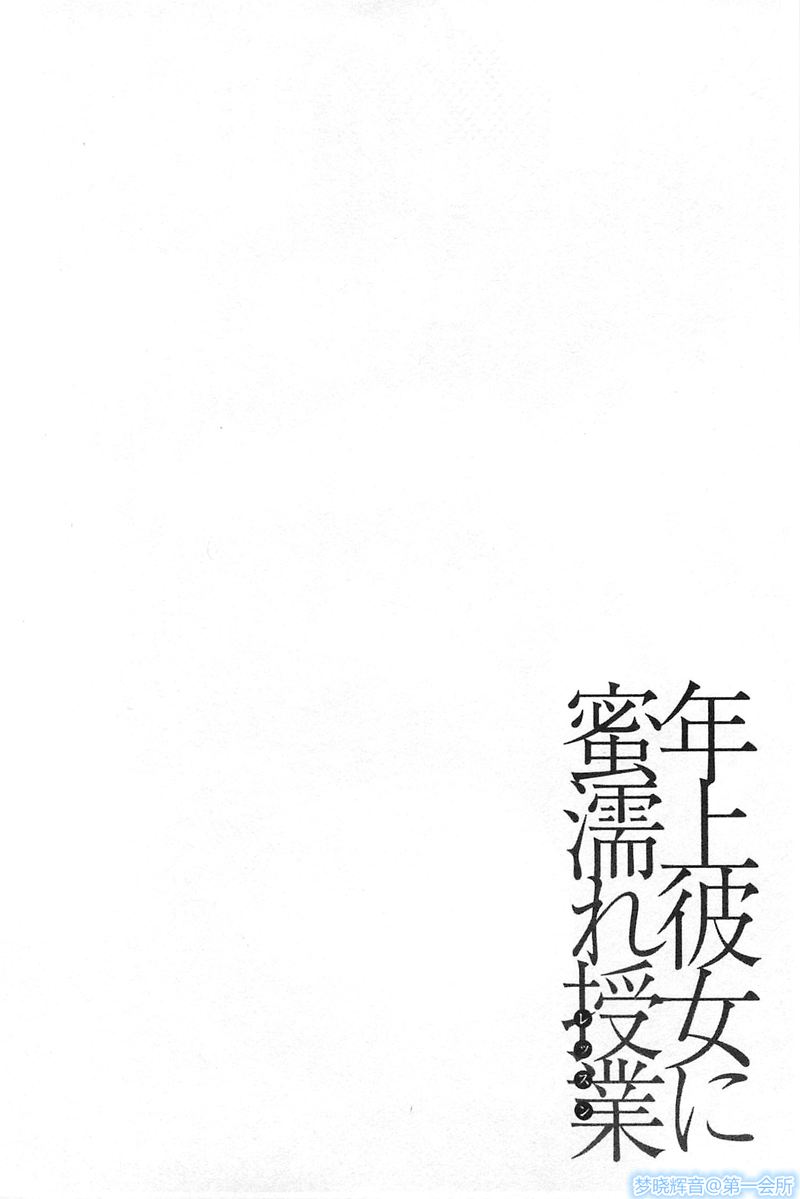 年上彼女に
蜜濡れ授業
レッスン
梦晓辉音@第一会所